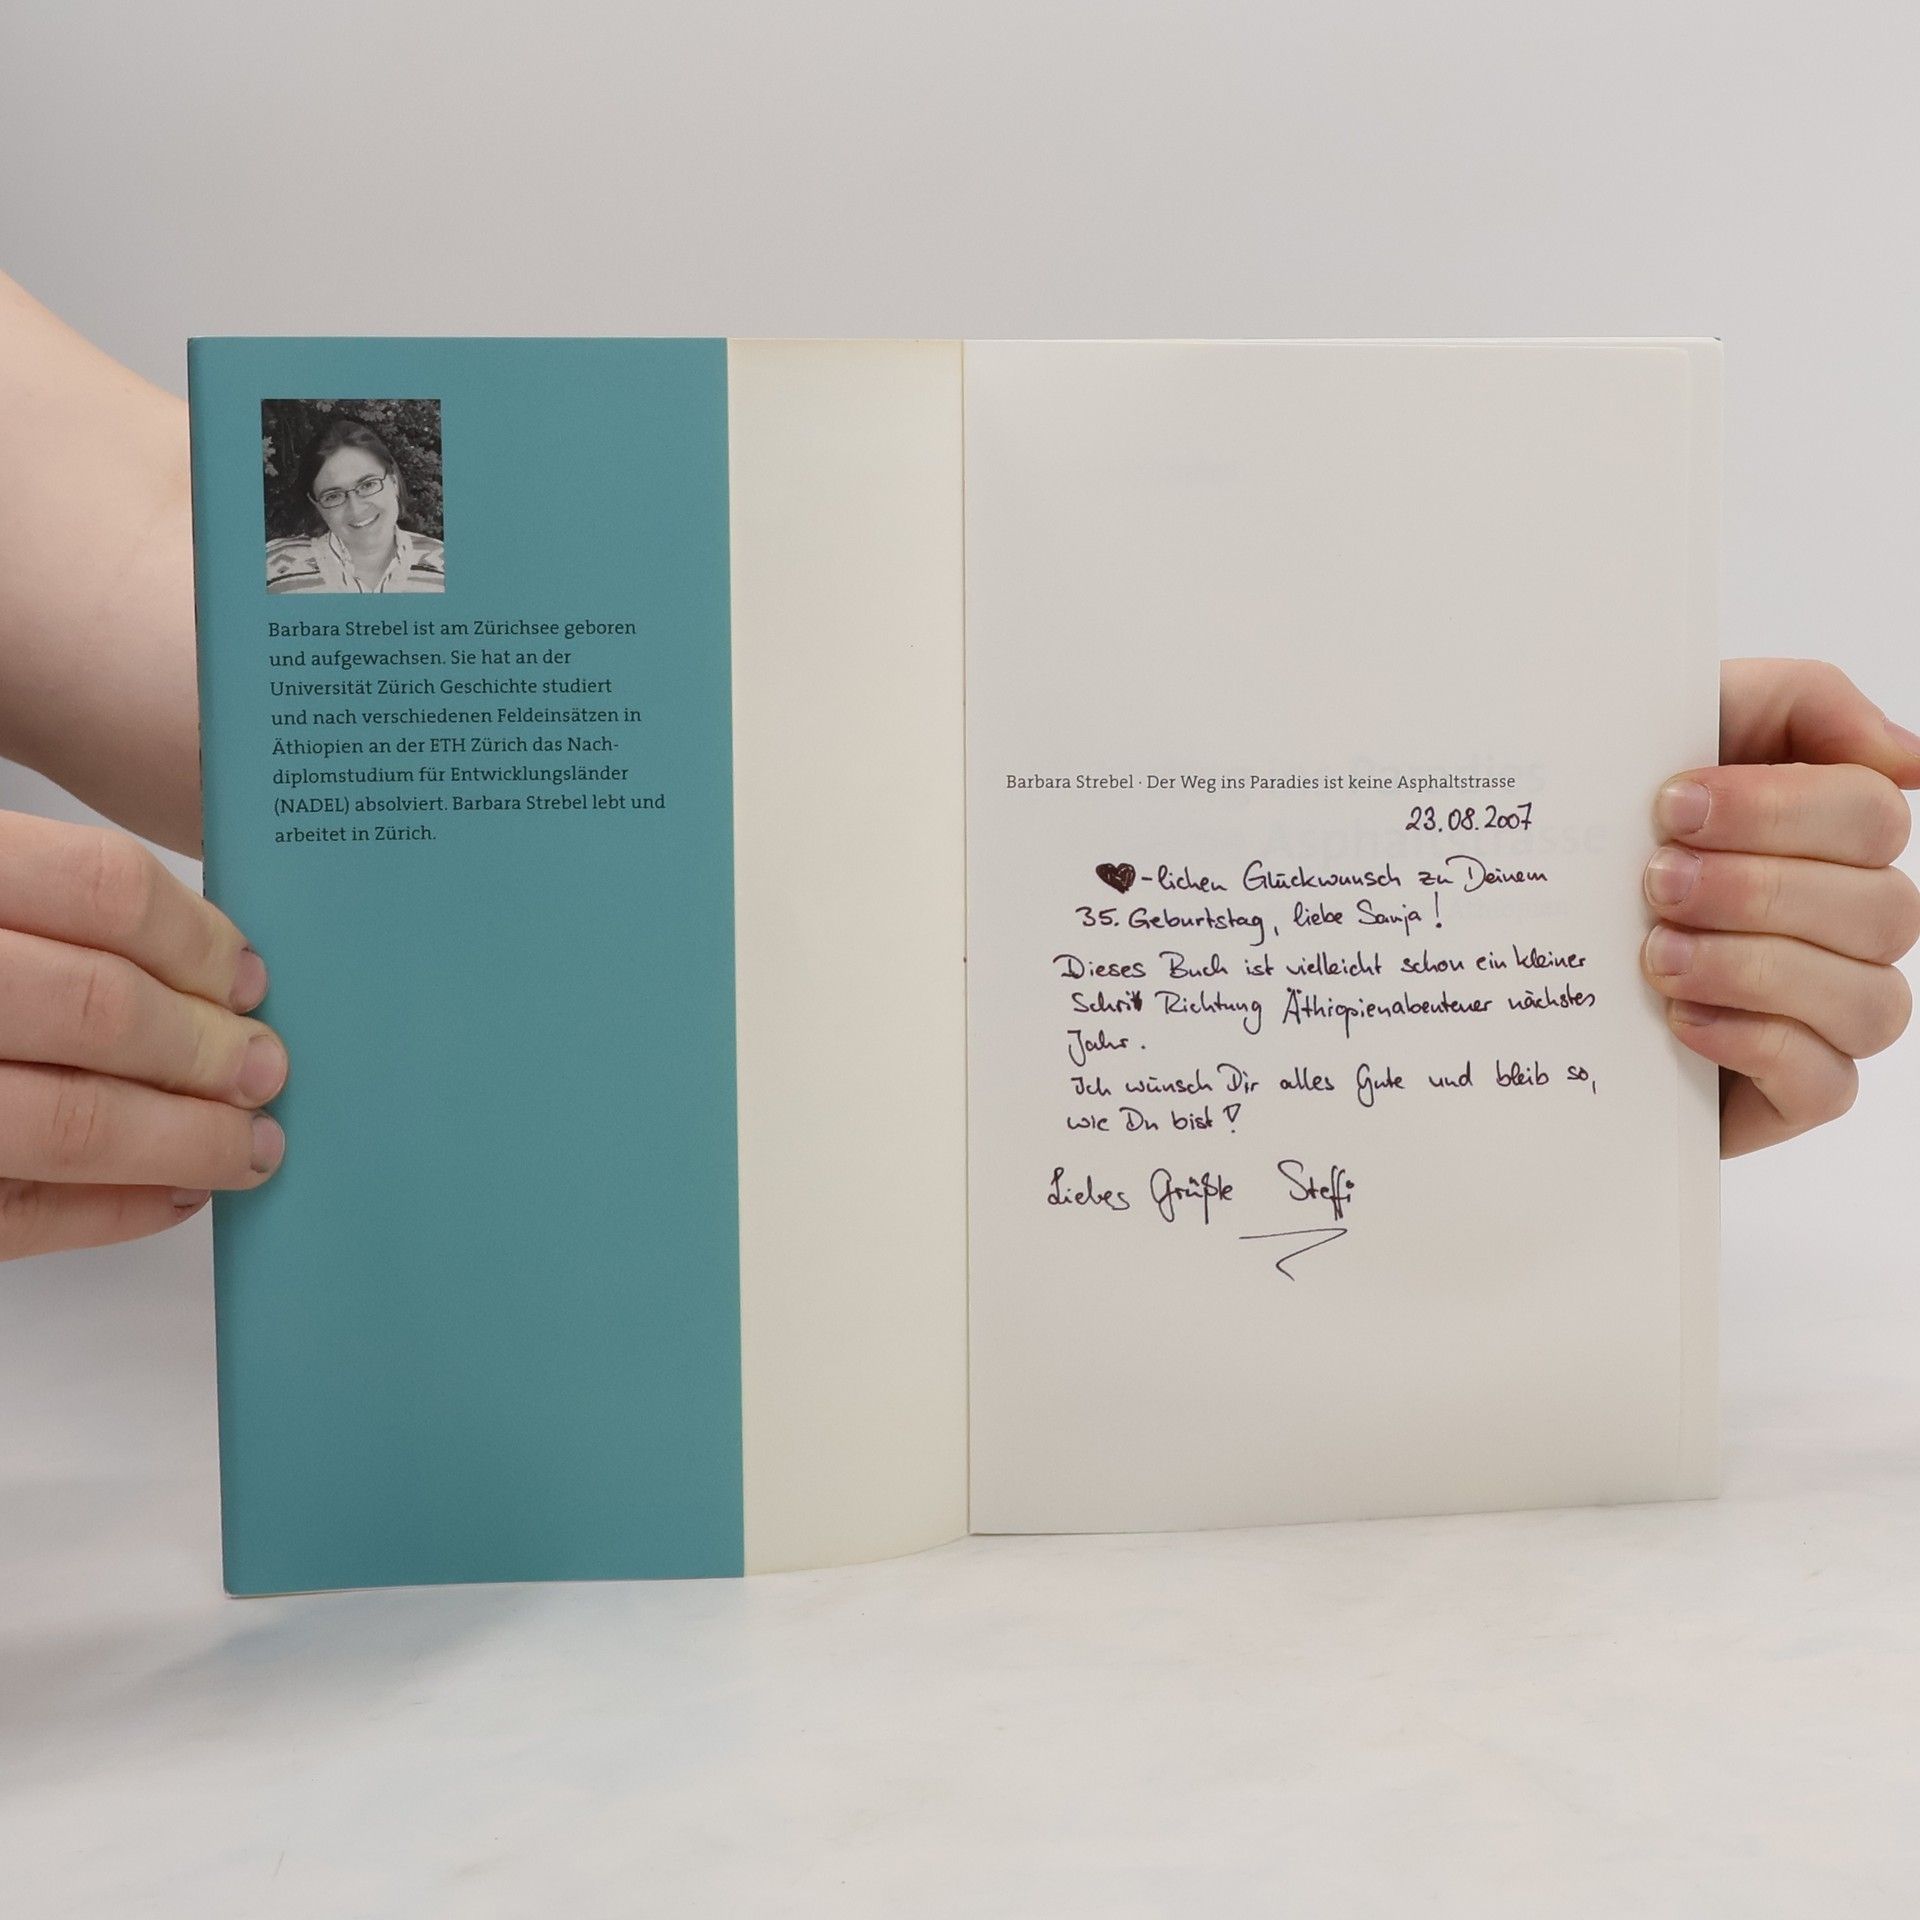 Barbara Strebel ist am Zürichsee geboren
und aufgewachsen. Sie hat an der
Universität Zürich Geschichte studiert
und nach verschiedenen Feldeinsätzen in
Äthiopien an der ETH Zürich das Nach-
diplomstudium für Entwicklungsländer
(NADEL) absolviert. Barbara Strebel lebt und
arbeitet in Zürich.
Barbara Strebel · Der Weg ins Paradies ist keine Asphaltstrasse
23.08.2007
♥-lichen Glückwunsch zu Deinem
35. Geburtstag, liebe Sanja!
Dieses Buch ist vielleicht schon ein kleiner
Schritt Richtung Äthiopienabenteuer nächstes
Jahr.
Ich wünsch Dir alles Gute und bleib so,
wie Du bist!
Liebes Grüßle Steffi